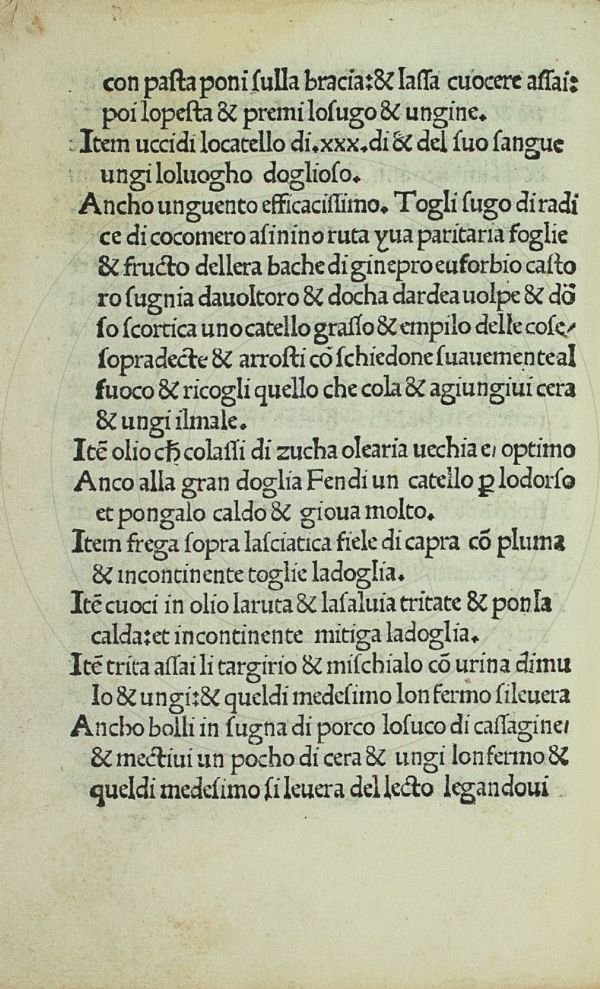 con pasta poni sulla bracia:& lassa cuocere assai:
poi lopesta & premi losugo & ungine.
Item uccidi locatello di.xxx.di & del suo sangue
ungi loluogho doglioso.
Ancho unguento efficacissimo. Togli sugo di radi
ce di cocomero asinino ruta yua paritaria foglie
& fructo dellera bache di ginepro euforbio casto
ro sugnia dauoltoro & docha dardea uolpe & dõ
so scortica uno catello grasso & empilo delle cose/
sopradecte & arrosti cõ schiedone suauemente al
fuoco & ricogli quello che cola & agiungiui cera
& ungi ilmale.
Itẽ olio cħ colassi di zucha olearia uechia e/ optimo
Anco alla gran doglia Fendi un catello ꝑ lodorso
et pongalo caldo & gioua molto.
Item frega sopra lasciatica fiele di capra cõ pluma
& incontinente toglie ladoglia.
Itẽ cuoci in olio laruta & lasaluia tritate & pon la
calda:et incontinente mitiga ladoglia.
Itẽ trita assai li targirio & mischialo cõ urina dimu
lo & ungi:& queldi medesimo lonfermo sileuera
Ancho bolli in sugna di porco losuco di cassagine/
& mectiui un pocho di cera & ungi lonfermo &
queldi medesimo si leuera del lecto legandoui